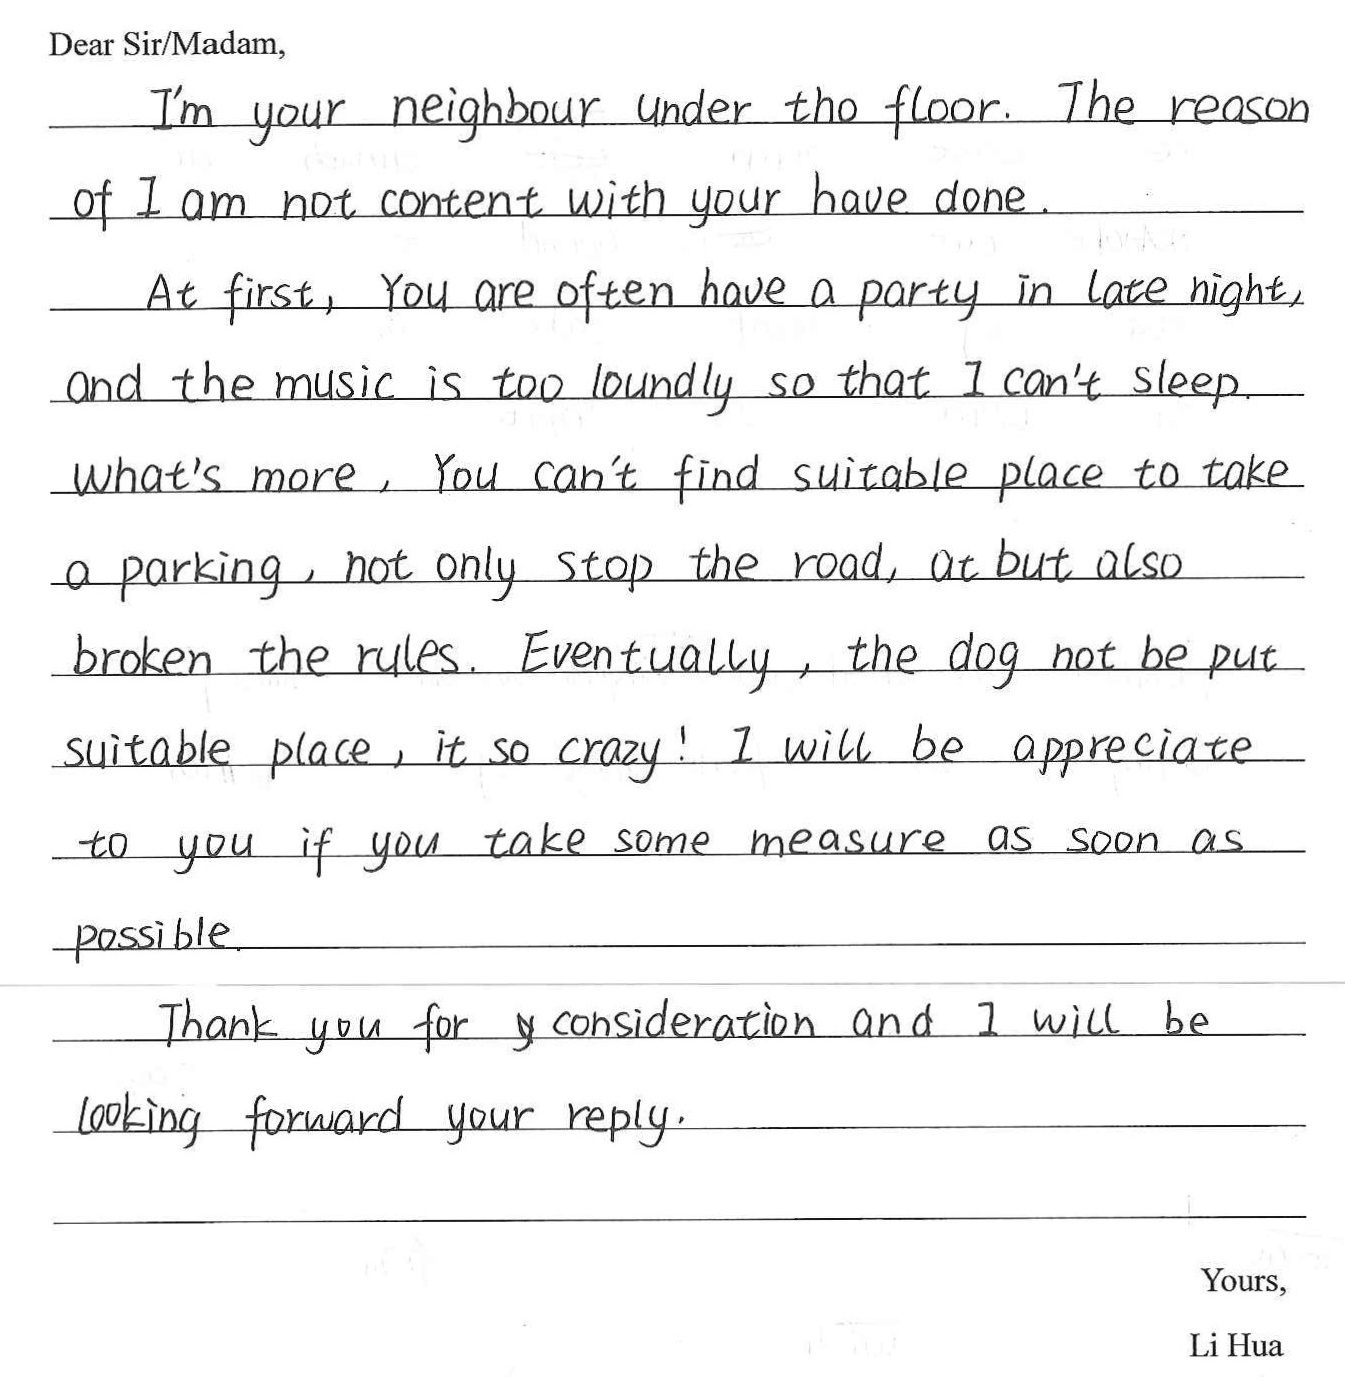 Dear Sir/Madam,
I'm your neighbour under tho floor. The reason
of I am not content with your have done.
At first, You are often have a party in late night,
and the music is too loundly so that I can't sleep.
What's more, You can't find suitable place to take
a parking, not only stop the road, at but also
broken the rules. Eventually, the dog not be put
suitable place, it so crazy! I will be appreciate
to you if you take some measure as soon as
possible.
Thank you for y consideration and I will be
looking forward your reply.
Yours,
Li Hua